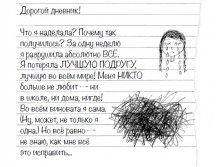 Дорогой дневник!
Что я наделала? Почему так
получилось? За одну неделю
я разрушила абсолютно ВСЁ.
Я потеряла ЛУЧШУЮ ПОДРУГУ,
лучшую во всём мире! Меня НИКТО
больше не любит -- ни
в школе, ни дома, нигде!
Во всём виновата я сама.
(Ну, может, не только я
одна.) Но всё равно --
не знаю, как мне всё
это исправить...